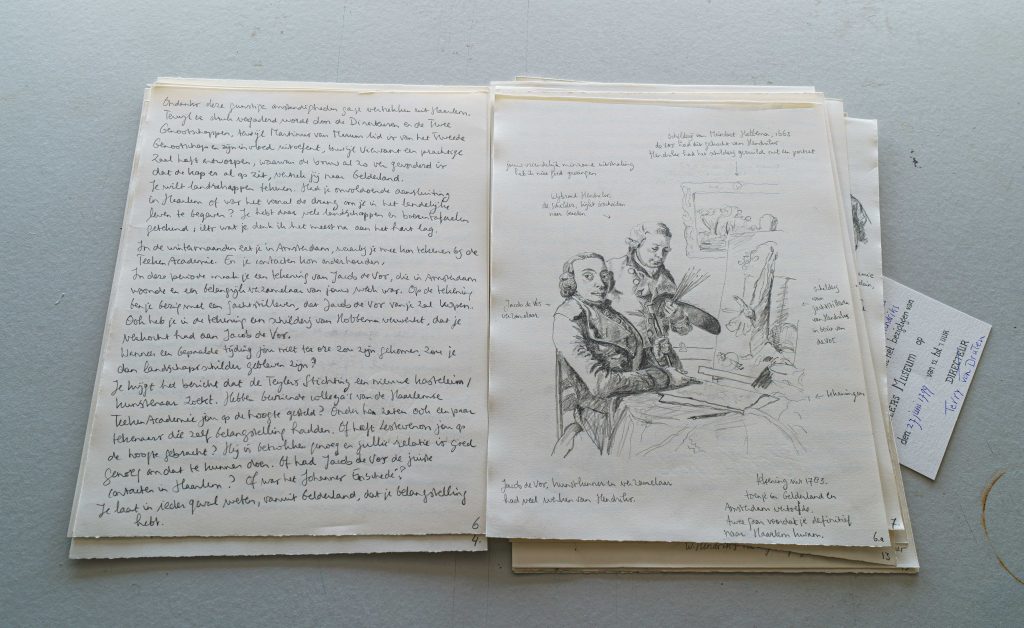 Ondanks deze gunstige omstandigheden ga je vertrekken uit Haarlem.
Terwijl er druk vergaderd wordt door de Directeuren en de Twee
Genootschappen, terwijl Martinus van Marum lid is van het Tweede
Genootschap en zijn invloed uitoefent, terwijl Viervant een prachtige
zaal heeft ontworpen, waarvan de bouw al zo ver gevorderd is
dat de kap er al op zit, vertrek jij naar Gelderland.
Je wilt landschappen tekenen. Had je onvoldoende aansluiting
in Haarlem of was het vooral de drang om je in het landelijke
leven te begeven? Je hebt daar vele landschappen en boerentaferelen
getekend, iets wat je denk ik het meest na aan het hart lag.
In de wintermaanden zat je in Amsterdam, waarbij je mee kon tekenen bij de
Teeken Academie. En je contacten kon onderhouden.
In deze periode maak je een tekening van Jacob de Vos, die in Amsterdam
woonde en een belangrijke verzamelaar van jouw werk was. Op de tekening
ben je bezig met een jachtstilleven, dat Jacob de Vos van je zal kopen.
Ook heb je in de tekening een schilderij van Hobbema verwerkt, dat je
verkocht had aan Jacob de Vos.
Wanneer een bepaalde tijding jou niet ter ore zou zijn gekomen, zou je
dan landschapschilder gebleven zijn?
Je krijgt het bericht dat de Teylers Stichting een nieuwe kastelein/
kunstenaar zoekt. Hebben bevriende collega's van de Haarlemse
Teeken Academie jou op de hoogte gesteld? Onder hen zaten ook een paar
tekenaars die zelf belangstelling hadden. Of heeft Lestevenon jou op
de hoogte gebracht? Hij is betrokken genoeg en jullie relatie is goed
genoeg om dat te kunnen doen. Of had Jacob de Vos de juiste
contacten in Haarlem? Of was het Johannes Enschedé?
Je laat in ieder geval weten, vanuit Gelderland, dat je belangstelling
hebt.
6
4.
schilderij van Meindert Hobbema, 1663
de Vos had dat gekocht van Hendriks
Hendriks had het schilderij geruild met een portret
jouw vriendelijk uitstraling
heb ik niet goed gevangen
Wybrand Hendriks,
de schilder, kijkt
naar beneden
Jacob de Vos
verzamelaar
schilderij
van
jachtstilleven
van Hendriks
in bezit van
de Vos
tekeningen
Jacob de Vos, kunstkenner en verzamelaar
had veel werken van Hendriks.
tekening uit 1783.
toen je in Gelderland en
Amsterdam vertoefde.
twee jaar voordat je definitief
naar Haarlem kwam.
6a
7
13
W. Hendriks
het bezigtigen van
LERS MUSEUM op
den 23 juni 1799 van 12 tot 1 uur
DIRECTEUR
Terry van Druten